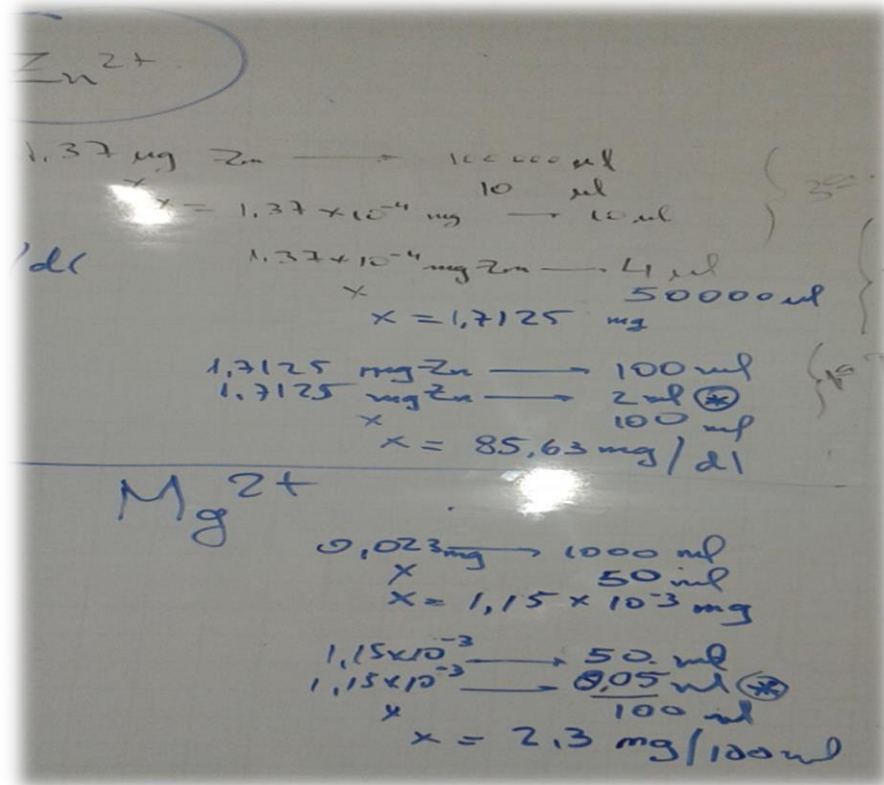 Zn2+
1,37 µg Zn → 100000 µl
x 10 µl
x = 1,37 x 10-4 mg → 10 µl
/dl 1.37 x 10-4 mg Zn — 4 µl
x 50000 µl
x = 1,7125 mg
1,7125 mg Zn → 100 ml
1.7125 mg Zn → 2 ml *
x 100 ml
x = 85,63 mg/dl
Mg2+
0,023 mg → 1000 ml
x 50 ml
x = 1,15 x 10-3 mg
1,15 x 10-3 → 50 ml
1,15 x 10-3 → 0,05 ml *
x 100 ml
x = 2,3 mg/100 ml